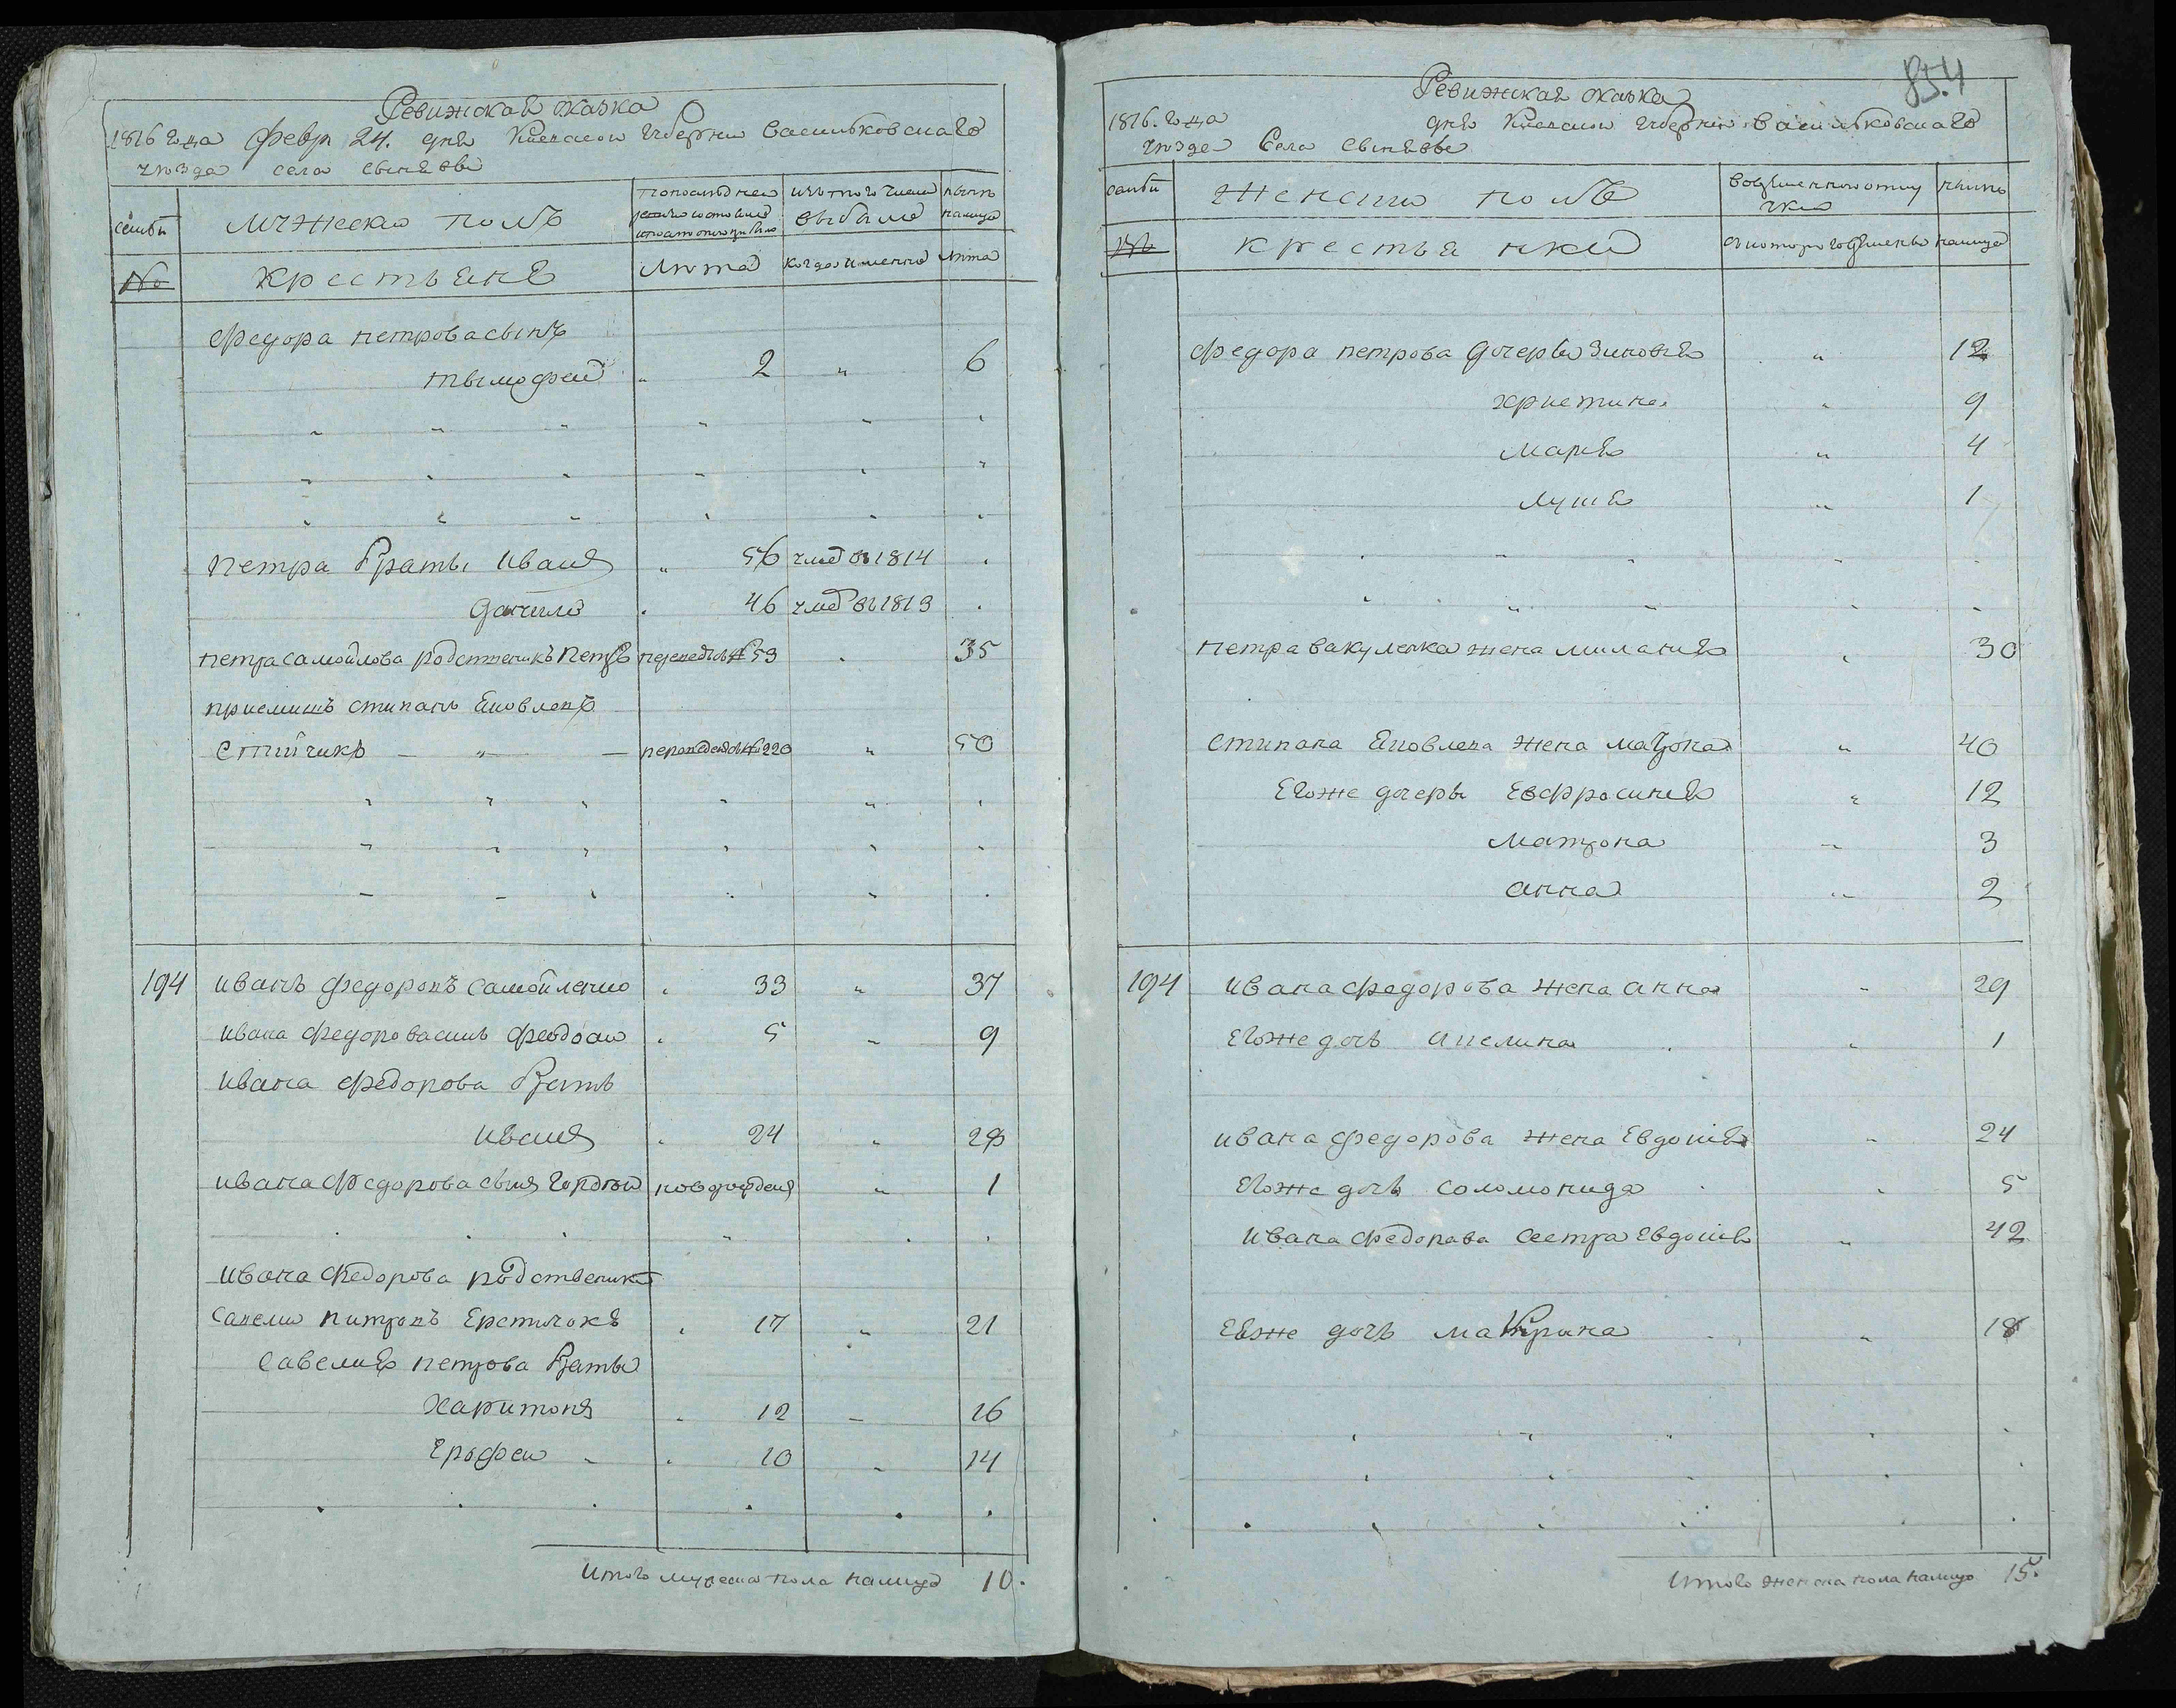 Ревижская сказка
1816 года февр 24. дня Киевской губернии Васильковскаго
уезда села Сыняве
семьи
мужеской полъ
по последней ревизии состояло
изъ того числа
выбыло
ныне
налицо
№
крестьяне
лета
когда именно
лета
Федора Петрова сынъ
Тымофей " 2 " 6
Петра браты Иванъ " 56 умер въ 1814
Данило 46 умер въ 1813
Петра Самойлова родственикъ Петръ переведенъ № 53 35
приемишъ Стипанъ Яковлевъ
переведенъ № 220 " 50
194 Иванъ Федоровъ Самойленко 33 " 37
Ивана Федорова сынъ Феодосий 5 9
Ивана Федорова братъ
Иванъ 24 28
Ивана Федорова сынъ Гордей новорожденъ 1
Ивана Федорова родственики
Савелий Питровъ 17 21
Савелия Петрова браты
Харитонъ 12 16
Ерофей 10 14
Итого мужеска пола налицо 10.
854
Ревижская сказка
1816. года дня Киевской губернии Васильковскаго
уезда Села Сыняве
семьи
женский полъ
во временной отлучке
ныне
№
крестьянки
съ котораго времени
налицо
Федора Петрова дочери Зиновия " 12
Христина 9
Мария " 4
Луция 1
Петра Вакуленка жена Милания 30
Стипана Яковлева жена Матрона " 40
Егоже дочеры Евфросиния 12
Матрона 3
Анна 2
194 Ивана Федорова жена Анна 29
Егоже дочь 1
Ивана Федорова жена Евдокия 24
Егоже дочь Соломонида 5
Ивана Федорова сестра Евдокия 42
Еяже дочь Макрина 18
Итого женска пола налицо 15.